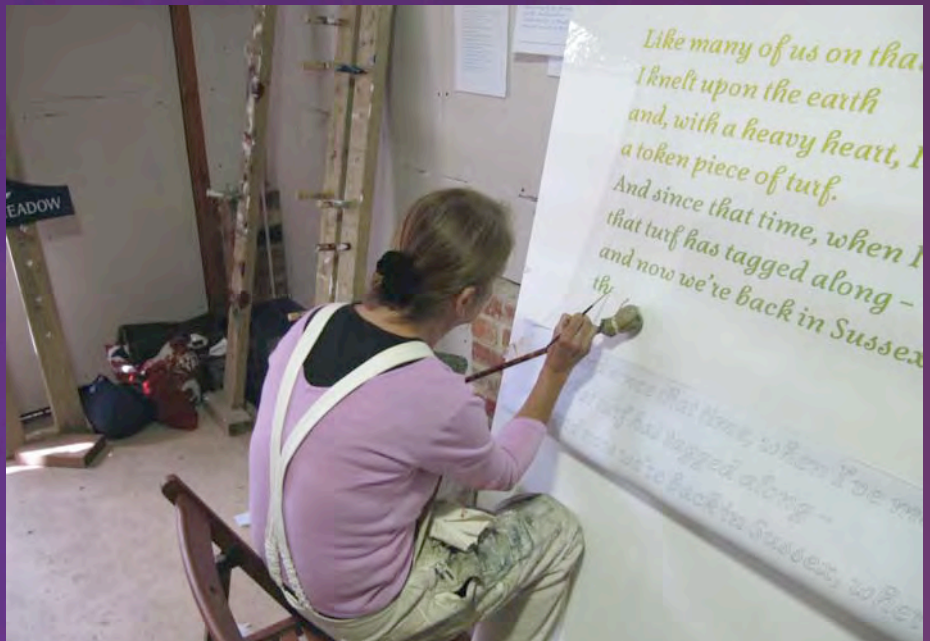 EADOW
Like many of us on tha
I knelt upon the earth
and, with a heavy heart, I
a token piece of turf.
And since that time, when I
that turf has tagged along –
and now we're back in Sussex
th
that time, when I've
turf has tagged along –
back in Sussex, wher